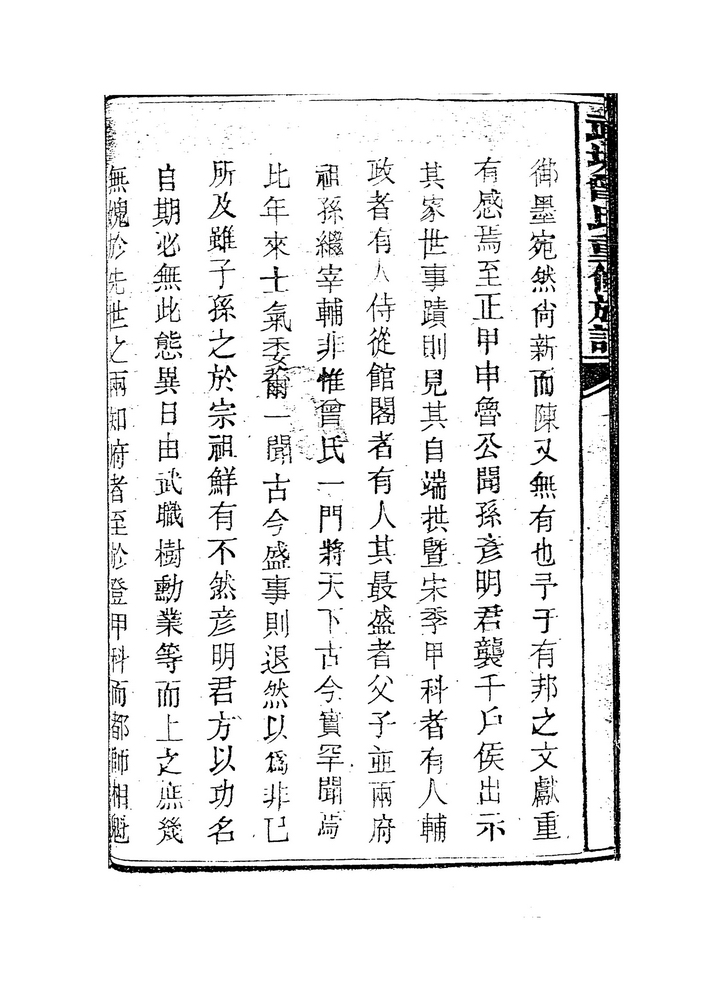 武城曾氏重修族譜
御墨宛然尚新而陳又無有也予于有邦之文獻重
有感焉至正甲申魯公聞孫彥明君襲千戶侯出示
其家世事蹟則見其自端拱暨宋季甲科者有人輔
政者有人侍從館閣者有人其最盛者父子並兩府
祖孫繼宰輔非惟曾氏一門將天下古今實罕聞焉
比年來士氣委爾一聞古今盛事則退然以爲非已
所及雖子孫之於宗祖鮮有不然彥明君方以功名
自期必無此態異日由武職樹勳業等而上之庶幾
無愧於先世之兩知府者至於登甲科而都師相魁